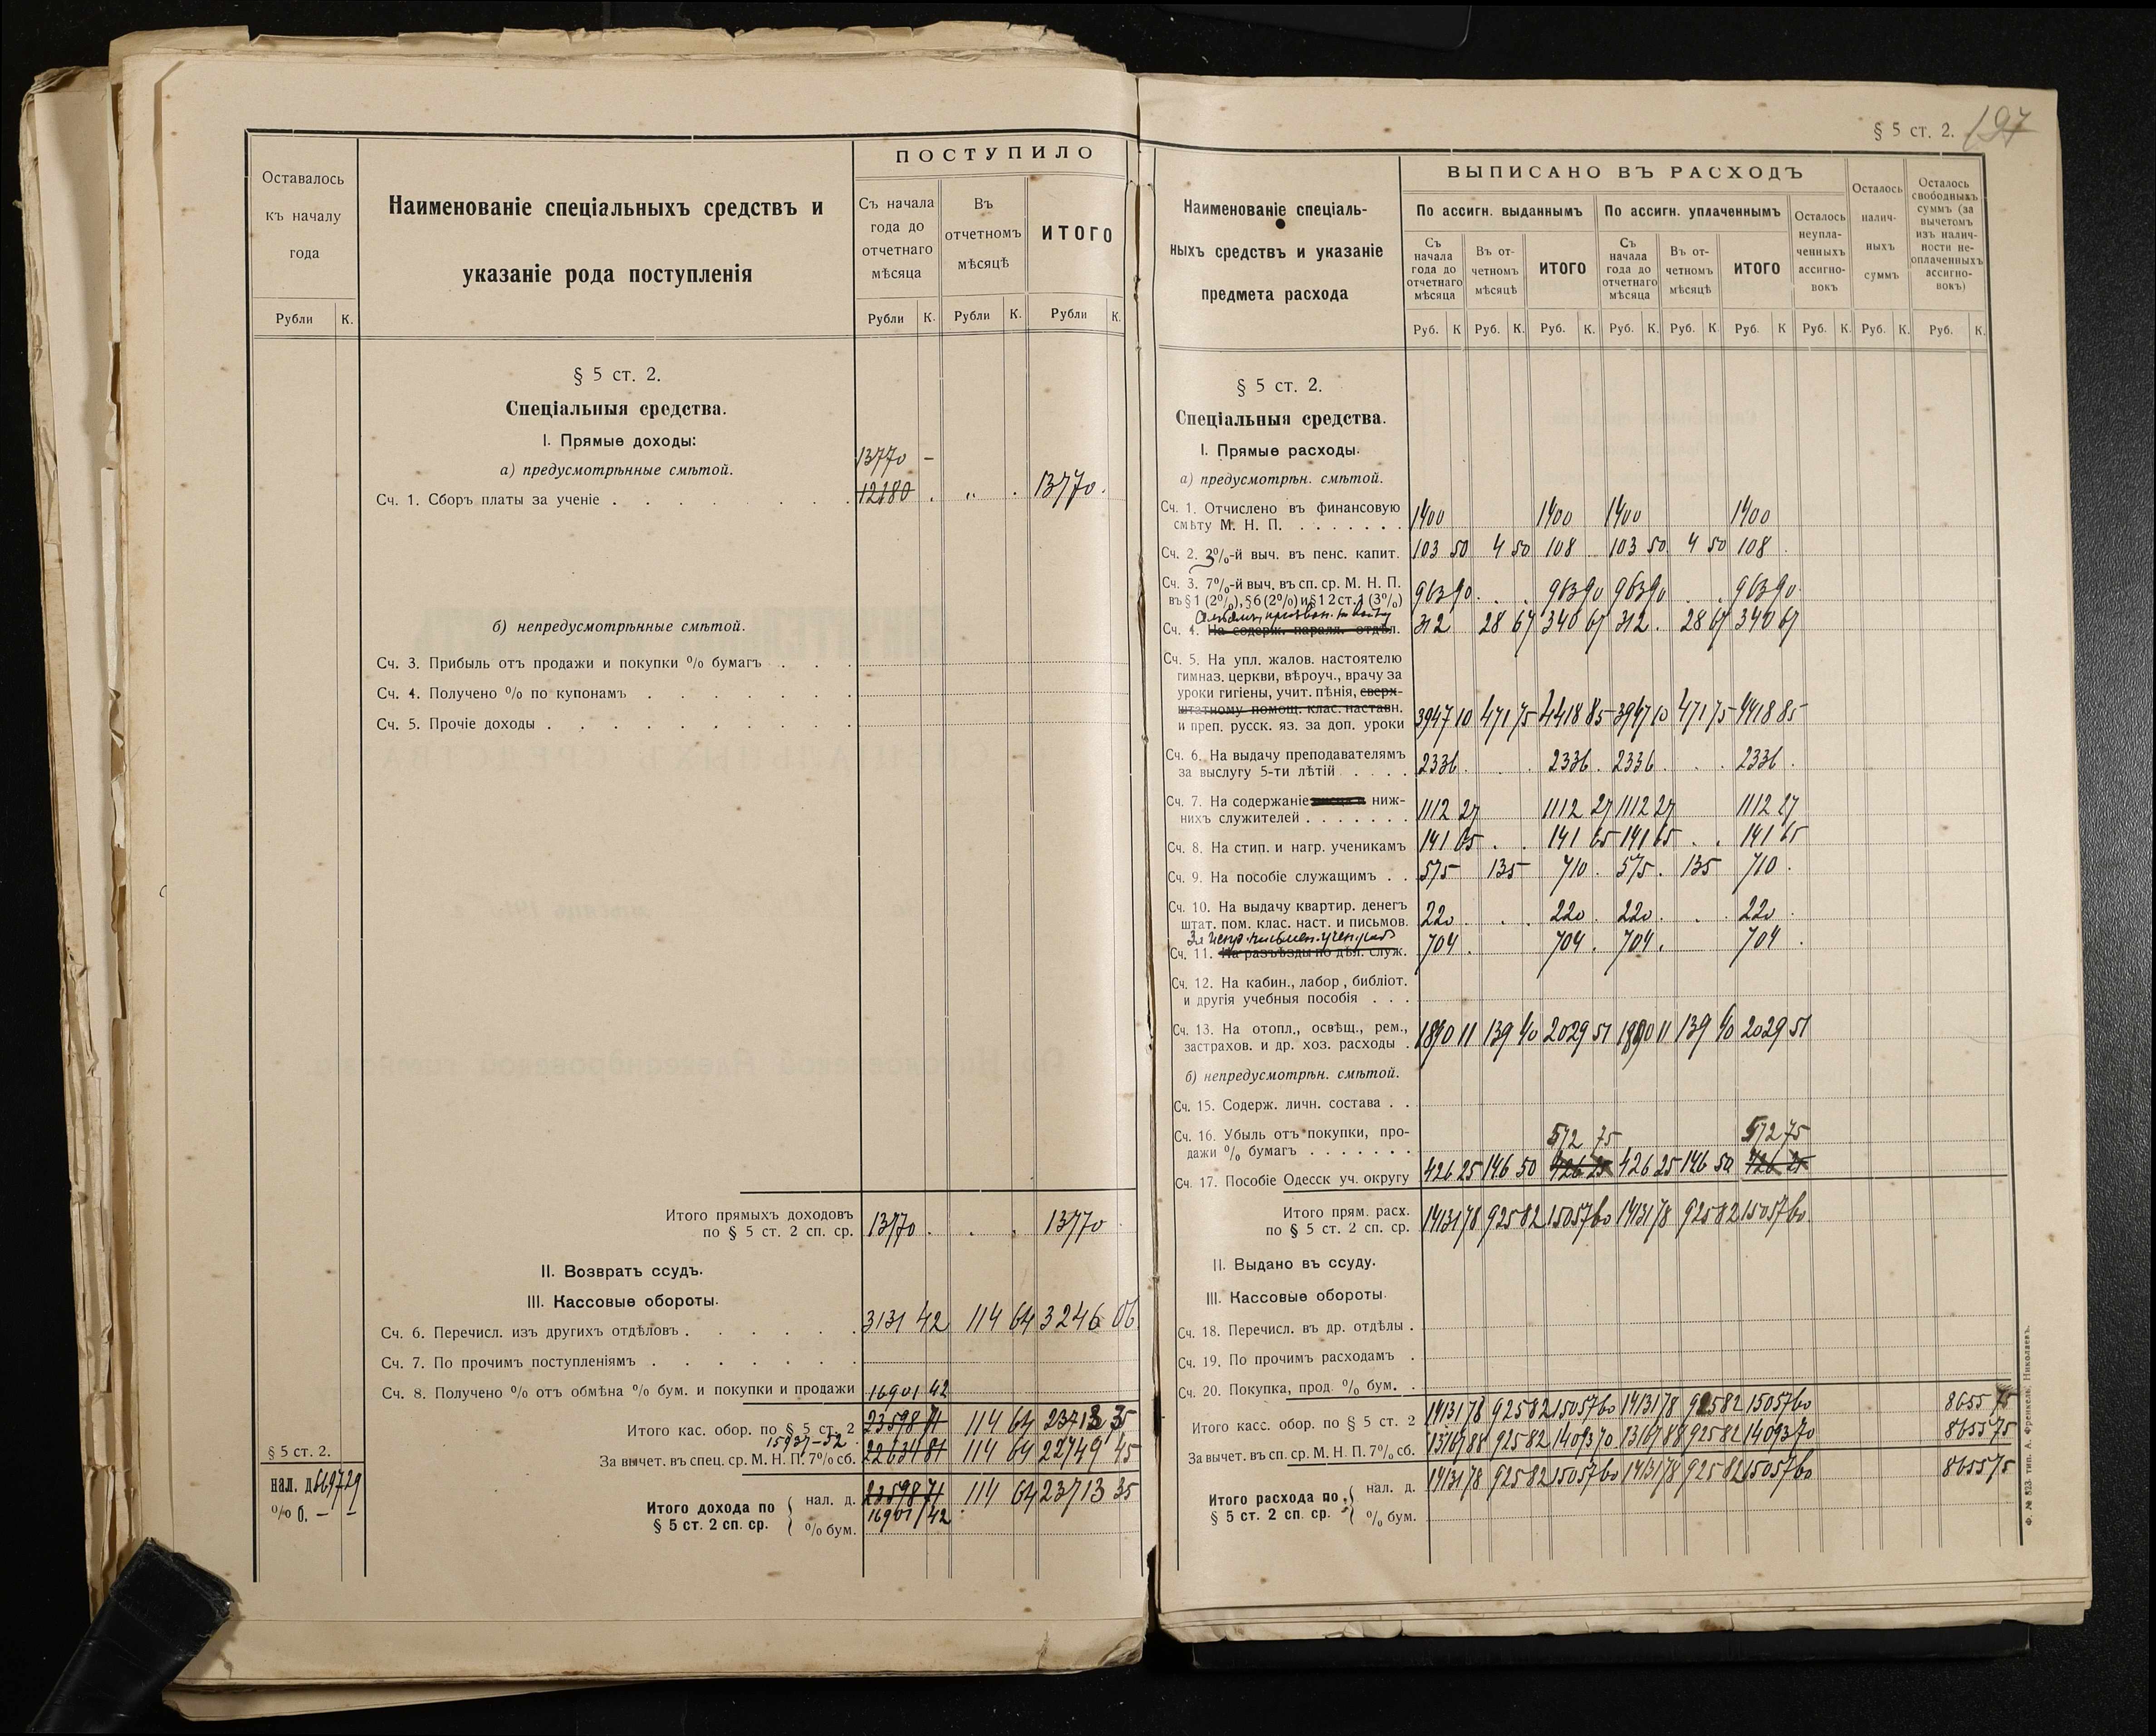 Оставалось
къ началу
года
Рубли К.
Наименованіе спеціальныхъ средствъ и
указаніе рода поступленія
ПОСТУПИЛО
Съ начала
года до
отчетнаго
мѣсяца
Въ
отчетномъ
мѣсяцѣ
ИТОГО
Рубли К. Рубли К. Рубли К.
§ 5 ст. 2.
Спеціальныя средства.
I. Прямые доходы:
13770 –
а) предусмотрѣнные смѣтой.
Сч. 1. Сборъ платы за ученіе 12180 . „ . 13770.
б) непредусмотрѣнные смѣтой.
Сч. 3. Прибыль отъ продажи и покупки % бумагъ
Сч. 4. Получено % по купонамъ
Сч. 5. Прочіе доходы
Итого прямыхъ доходовъ
по § 5 ст. 2 сп. ср. 13770 . . . 13770
II. Возвратъ ссудъ.
III. Кассовые обороты.
Сч. 6. Перечисл. изъ другихъ отдѣловъ 3131 42 114 64 3246 06
Сч. 7. По прочимъ поступленіямъ
Сч. 8. Получено % отъ обмѣна % бум. и покупки и продажи
16901 42
Итого кас. обор. по § 5 ст. 2 23598 71 114 64 23713 35
15937–52
За вычет. въ спец. ср. М. Н. П. 7% сб. 22634 81 114 64 22749 45
§ 5 ст. 2.
нал. д. 6697 29
% б. – –
Итого дохода по
§ 5 ст. 2 сп. ср.
нал. д. 23598 71 114 64 23713 35
16901 42
% бум.
§ 5 ст. 2. 197
Наименованіе спеціаль-
ныхъ средствъ и указаніе
предмета расхода
ВЫПИСАНО ВЪ РАСХОДЪ
По ассигн. выданнымъ По ассигн. уплаченнымъ
Съ
начала
года до
отчетнаго
мѣсяца
Въ от-
четномъ
мѣсяцѣ
ИТОГО
Съ
начала
года до
отчетнаго
мѣсяца
Въ от-
четномъ
мѣсяцѣ
ИТОГО
Осталось
неупла-
ченныхъ
ассигно-
вокъ
Осталось
налич-
ныхъ
суммъ
Осталось
свободныхъ
суммъ (за
вычетомъ
изъ налич-
ности не-
оплаченныхъ
ассигно-
вокъ)
Руб. К Руб. К. Руб. К. Руб. К. Руб. К. Руб. К Руб. К. Руб. К. Руб. К.
§ 5 ст. 2.
Спеціальныя средства.
I. Прямые расходы.
а) предусмотрѣн. смѣтой.
Сч. 1. Отчислено въ финансовую
смѣту М. Н. П. 1400 1400 1400 1400
Сч. 2. 3%-й выч. въ пенс. капит. 103 50 4 50 108 . 103 50 4 50 108 .
Сч. 3. 7%-й выч. въ сп. ср. М. Н. П.
въ § 1 (2%), § 6 (2%) и § 12 ст. 1 (3%) 963 90 . . 963 90 963 90 . . 963 90
Сч. 4. На содерж. паралл. отдѣл. 312 28 67 340 67 312 . 28 67 340 67
Сч. 5. На упл. жалов. настоятелю
гимназ. церкви, вѣроуч., врачу за
уроки гигіены, учит. пѣнія, сверх-
штатному помощ. клас. наставн.
и преп. русск. яз. за доп. уроки 3947 10 471 75 4418 85 3947 10 471 75 4418 85
Сч. 6. На выдачу преподавателямъ
за выслугу 5-ти лѣтій 2336 . . . 2336 . 2336 . . . 2336 .
Сч. 7. На содержаніе писца и ниж-
нихъ служителей 1112 27 1112 27 1112 27 1112 27
Сч. 8. На стип. и нагр. ученикамъ 141 65 . . 141 65 141 65 . . 141 65
Сч. 9. На пособіе служащимъ 575 135 710 . 575 . 135 710 .
Сч. 10. На выдачу квартир. денегъ
штат. пом. клас. наст. и письмов. 220 . . . 220 . 220 . . . 220 .
Сч. 11. На разъѣзды по дѣл. служ. 704 . 704 . 704 . 704 .
Сч. 12. На кабин., лабор., библіот.
и другія учебныя пособія
Сч. 13. На отопл., освѣщ., рем.,
застрахов. и др. хоз. расходы 1890 11 139 40 2029 51 1890 11 139 40 2029 51
б) непредусмотрѣн. смѣтой.
Сч. 15. Содерж. личн. состава
Сч. 16. Убыль отъ покупки, про-
дажи % бумагъ
572 75 572 75
Сч. 17. Пособіе Одесск уч. округу 426 25 146 50 426 25 426 25 146 50 426 25
Итого прям. расх.
по § 5 ст. 2 сп. ср. 14131 78 925 82 15057 60 14131 78 925 82 15057 60
II. Выдано въ ссуду.
III. Кассовые обороты.
Сч. 18. Перечисл. въ др. отдѣлы
Сч. 19. По прочимъ расходамъ
Сч. 20. Покупка, прод. % бум.
Итого касс. обор. по § 5 ст. 2 14131 78 925 82 15057 60 14131 78 925 82 15057 60 8655 75
За вычет. въ сп. ср. М. Н. П. 7% сб. 13167 88 925 82 14093 70 13167 88 925 82 14093 70 8655 75
Итого расхода по
§ 5 ст. 2 сп. ср.
нал. д. 14131 78 925 82 15057 60 14131 78 925 82 15057 60 8655 75
% бум.
Ф. № 523. тип. А. Френкель. Николаевъ.